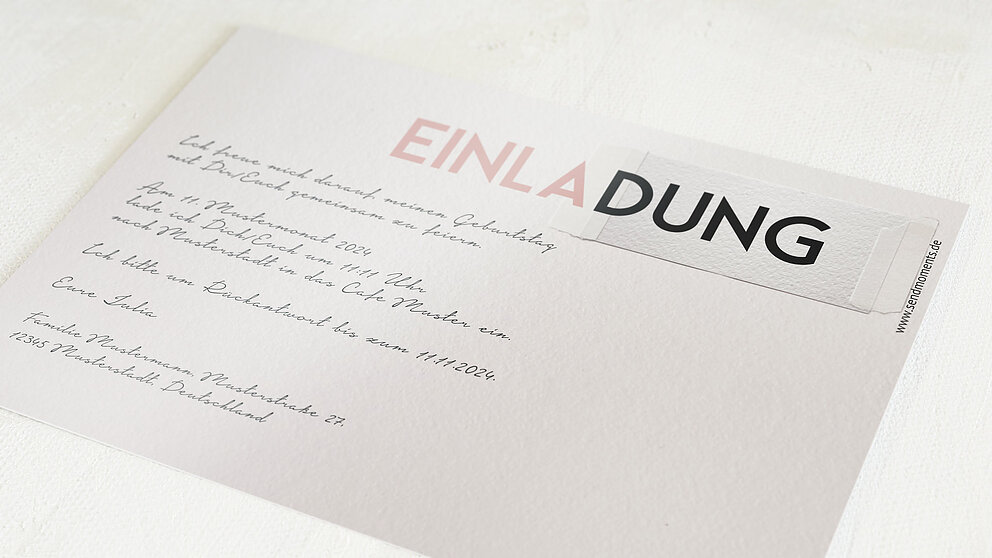 EINLADUNG
Ich freue mich darauf meinen Geburtstag
mit Dir/Euch gemeinsam zu feiern.
Am 11. Mustermonat 2024
lade ich Dich/Euch um 11:11 Uhr
nach Musterstadt in das Cafe Muster ein.
Ich bitte um Rückantwort bis zum 11.11.2024.
Eure Julia
Familie Mustermann, Musterstraße 27,
12345 Musterstadt, Deutschland
www.sendmoments.de